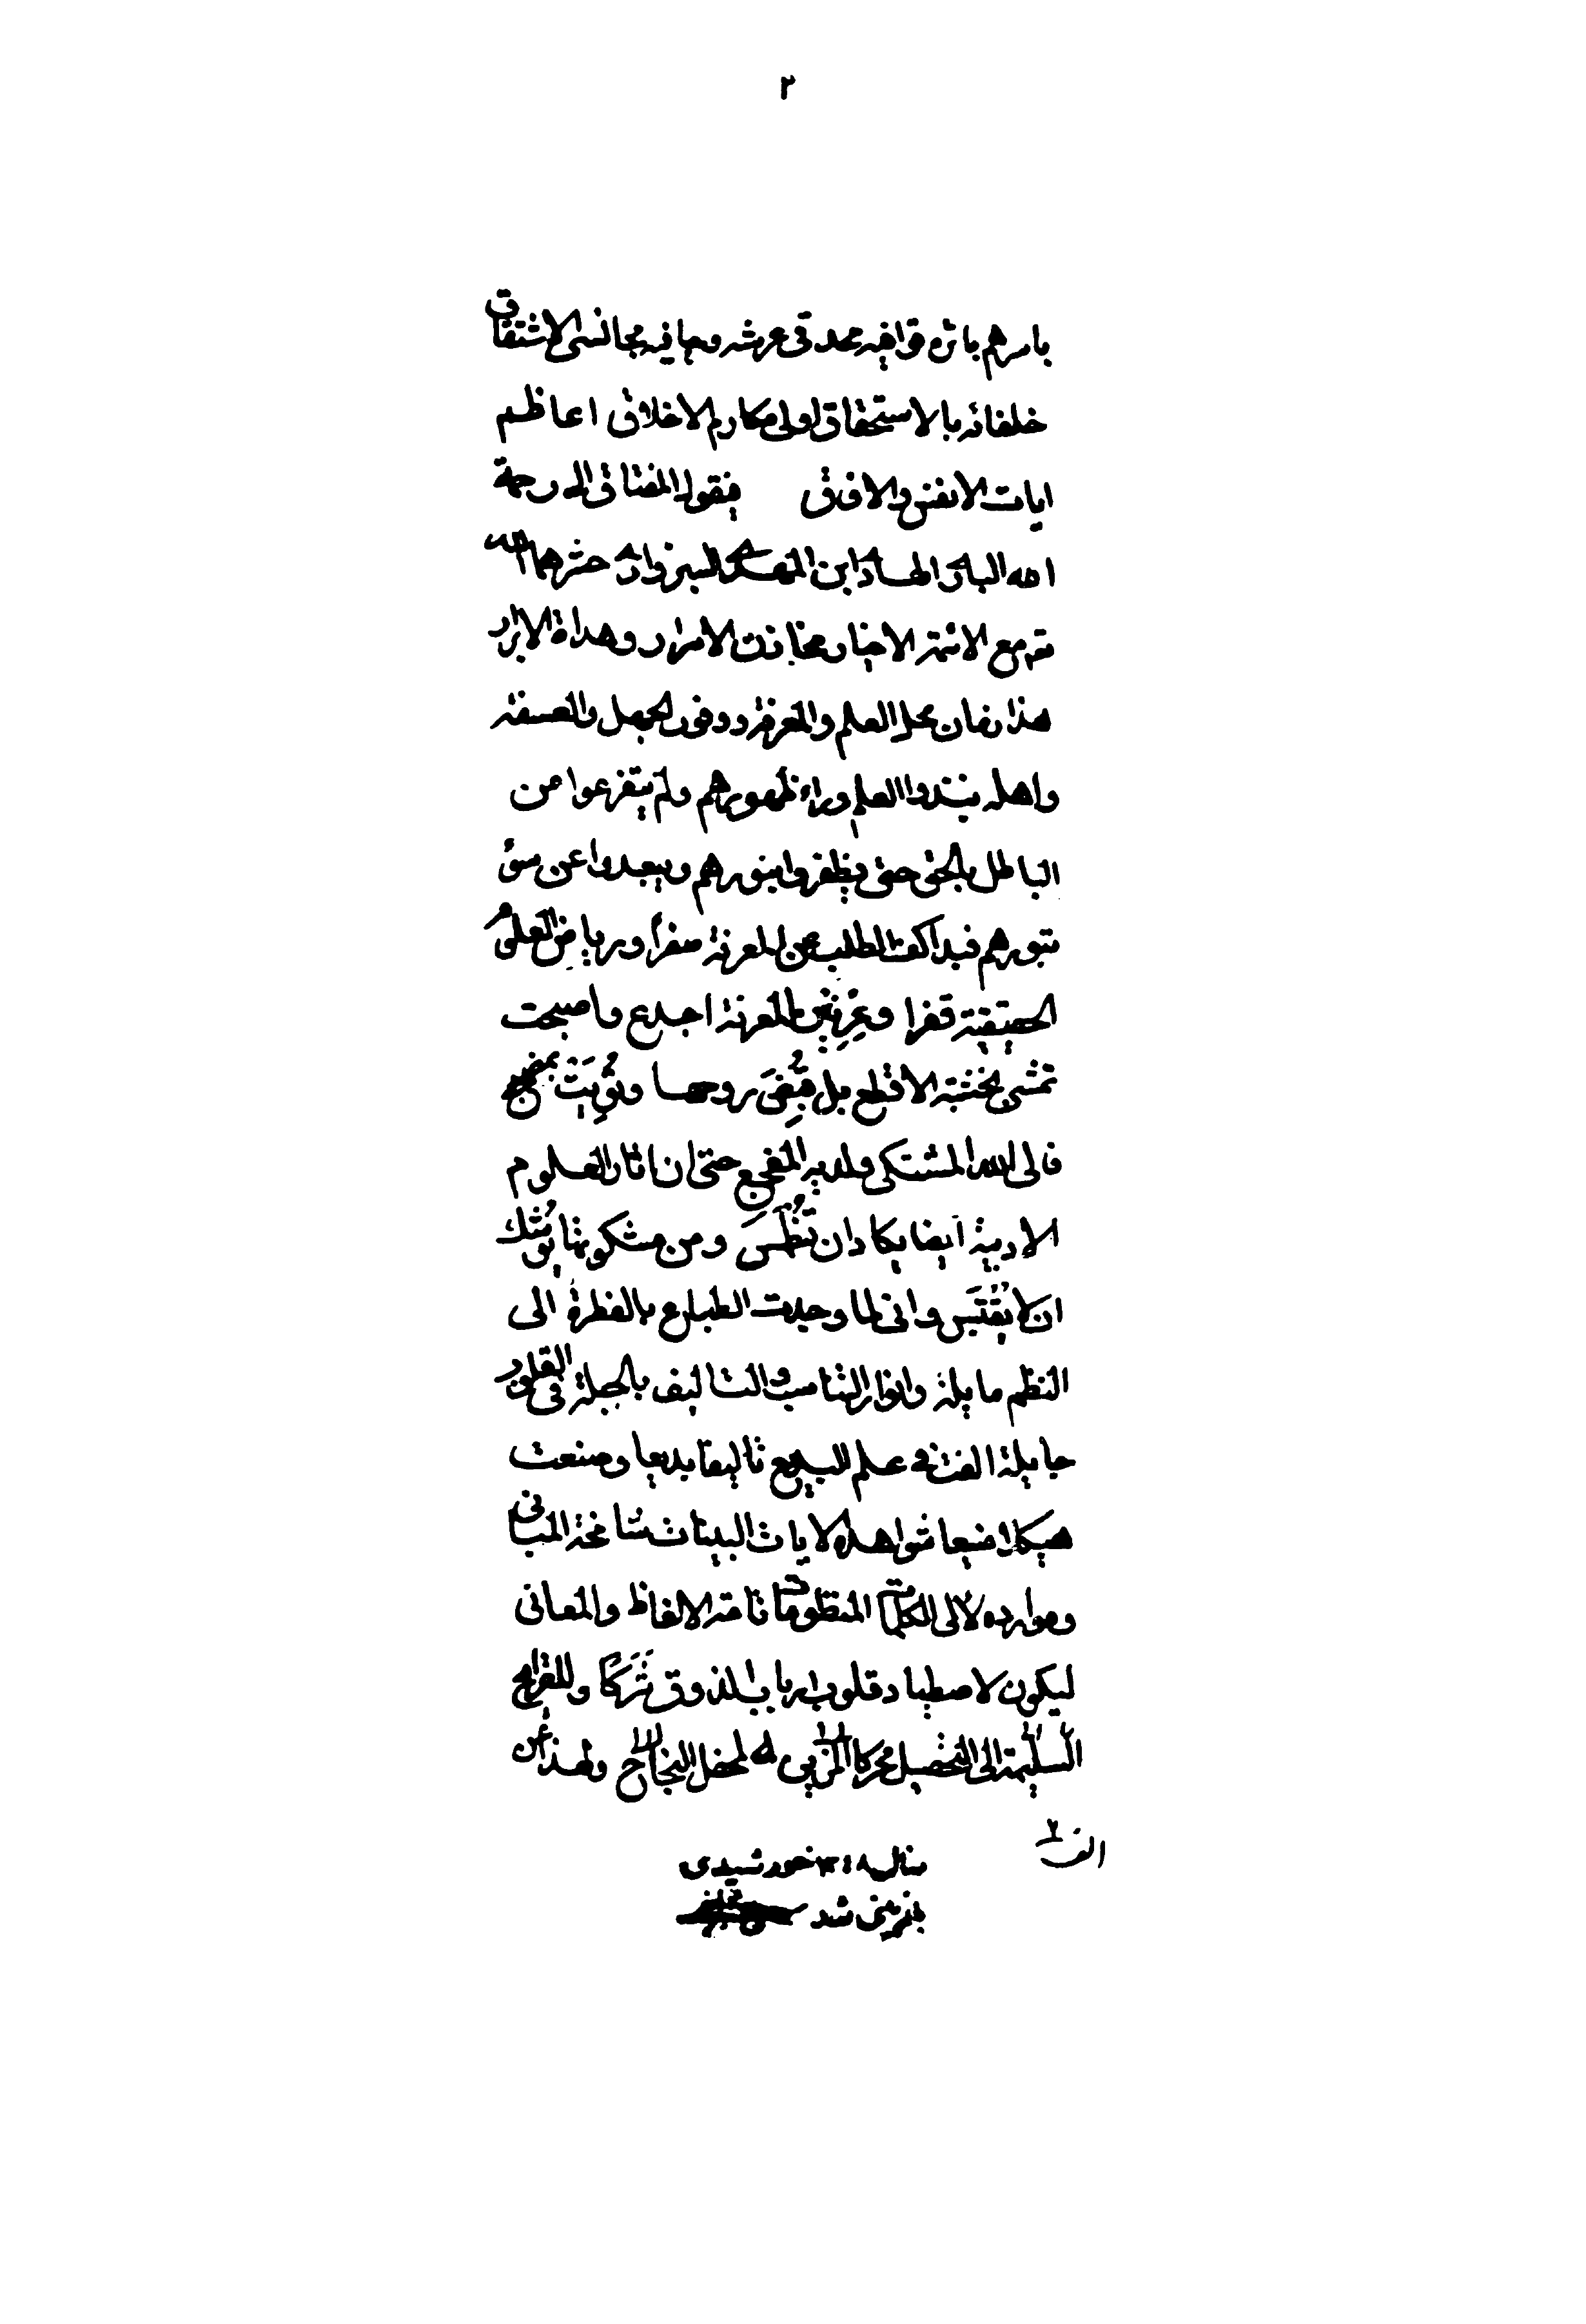 ٢
باسرهم باثره قوافيه محمد في عرشه وجافيه مجالس الاشتقاق
خلفائه بالاستحقاق اولى مكارم الاخلاق اعاظم
ايات الانفس والافاق فيقول المفتاق الى رحمة
الله البارى الهادى ابن المهدى السبزوارى حشرهما الله
تع مع الائمة الاخيار مخازن الاسرار وهداة الابرار
هذا زمان محل العلم والمعرفة ووفور الجهل والعسفة
واهله نبذوا العلم وراء ظهورهم ولم يتفرعوا من
الباطل بالحق حتى يظفروا بنورهم ويبعدوا عن سوء
ثبورهم فيدا كف الطلب عن المعرفة صفرا ورياض العلم
الحقيقية قفرا وعرنين المعرفة اجدع واصبحت
تمشى بخشبة الاقطع بل قُبِضَ روحها وثُوِيَتْ بمضجع
فالى الله المشتكى ولديه المفجع حتى ان اثار العلوم
الادبية ايضا يكاد ان تُطْمَسَ ومن مشكوتها يُوشك
ان لا يُقْتَبَس وانى لما وجدت الطبايع بالفطرة الى
النظم مايلة وانوار التناسب والتاليف بالجبلة فى القلوب
جايلة الفت فى علم البديع تاليفا بديعا وصنعت
هيكلا منيعا شواهده الايات البينات شامخة المبانى
وموارده لالى الكلمات المنظومات تامة الالفاظ والمعانى
ليكون لاصطياد قلوب ارباب الذوق شَرَكًا وللقرايح
السليمة الى التحصيل محركا لمحفل النجاح ولهذا
الف
سال ١٣٠٨ خورشيدى
شد